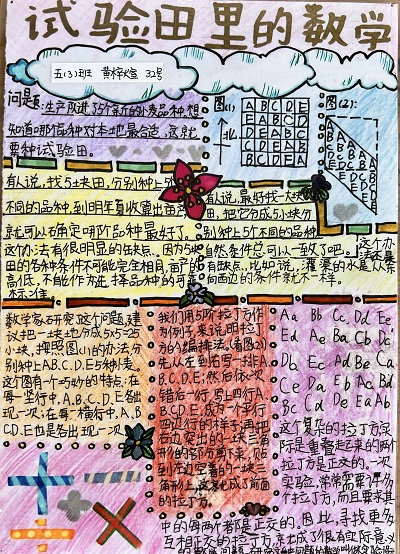 试验田里的数学
五(3)班 黄梓煊 32号
问题: 生产队进了5个新的小麦品种,想
知道哪个品种对本地最合适,这就
要种试验田。
图(1):
北
A B C D E
E A B C D
D E A B C
C D E A B
B C D E A
图(2):
有人说,找5块田,分别种上5个
不同的品种,到明年夏收票出亩产
就可以确定哪个品种最好了。
这个办法有很明显的缺点。因为5块
田的各种条件不可能完全相同,亩产的
高低,不能作为选择品种的可靠
标准
有人说,最好找一大块
田,把它分成5小块分
别种上5个不同的品种
自然条件总可以一致了吧。这个办法还是
有缺点。比如说,灌渠的水是从东
向西边的条件就不一样。
数学家研究这个问题,建
议把一块地分成5×5=25
小块,按照图(1)的办法分
别种上A.B.C.D.E5种小麦。
这个图有个巧妙的特点:在
每一竖行中,A.B.C.D.E各出
现一次;在每一横行中,A.B
C.D.E也是各出现一次
我们用5阶拉丁方作
为例子,来说明拉丁
方的编排法。(看图(2))
先从左到右写一排A
B.C.D.E;然后依次
错后一行,写上四行A
B.C.D.E,成为一个平行
四边行的样子;再把
右边突出的一块三角
形的部分剪下来,贴
到左边空着的一块三
角形上,这就成了前面
的拉丁方。
Aa Bb Cc Dd Ee
Ed Ae Ba Cb Dc
Db Ec Ad Be Ca
Ce Da Eb Ac Bd
Bc Cd De Ea Ab
这个复杂的拉丁方实
际是重叠起来的两个
拉丁方是正交的。一次
实验,常常需要许多
个拉丁方,而且要求其
中的每两个都是正交的。因此,寻找更多
互相正交的拉丁方,就成了很有实际意义